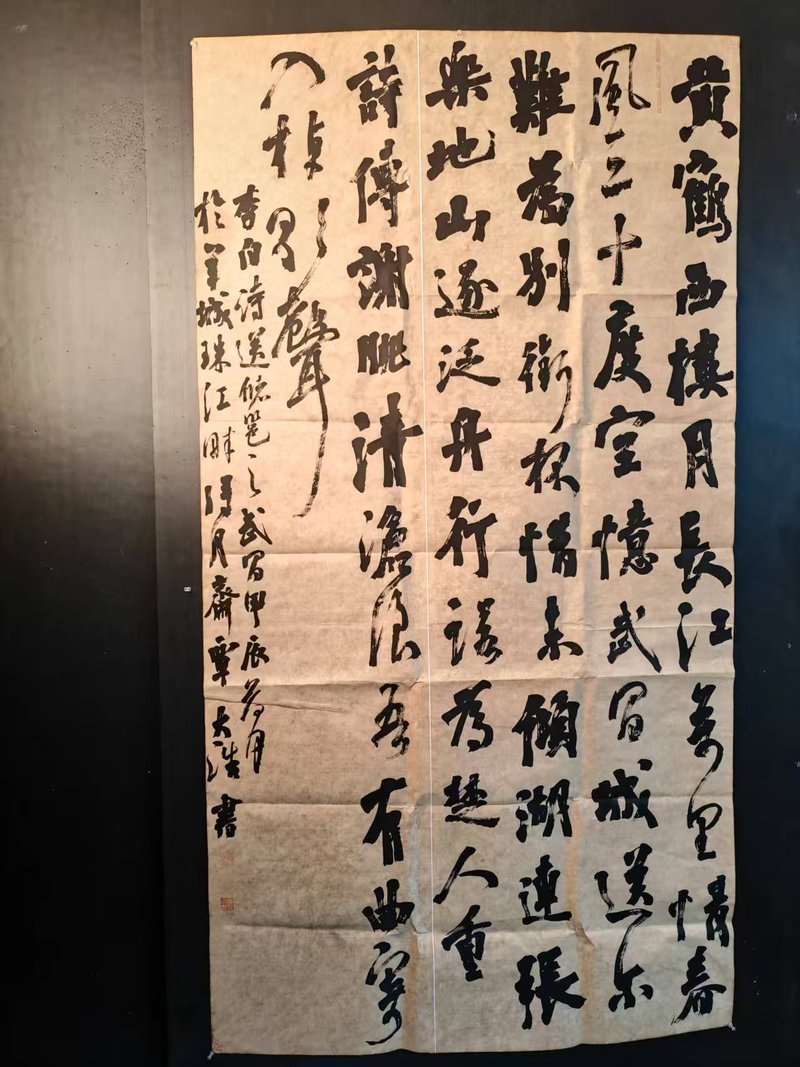 黄鶴西樓月長江萬里情春
風三十度空憶武昌城送尔
難為別銜杯惜未傾湖連張
樂地山逐泛舟行諾為楚人重
詩傳謝朓清滄浪吾有曲寄
入棹歌聲
李白詩送儲邕之武昌甲辰荷月
於羊城珠江畔得月齋覃大浩書